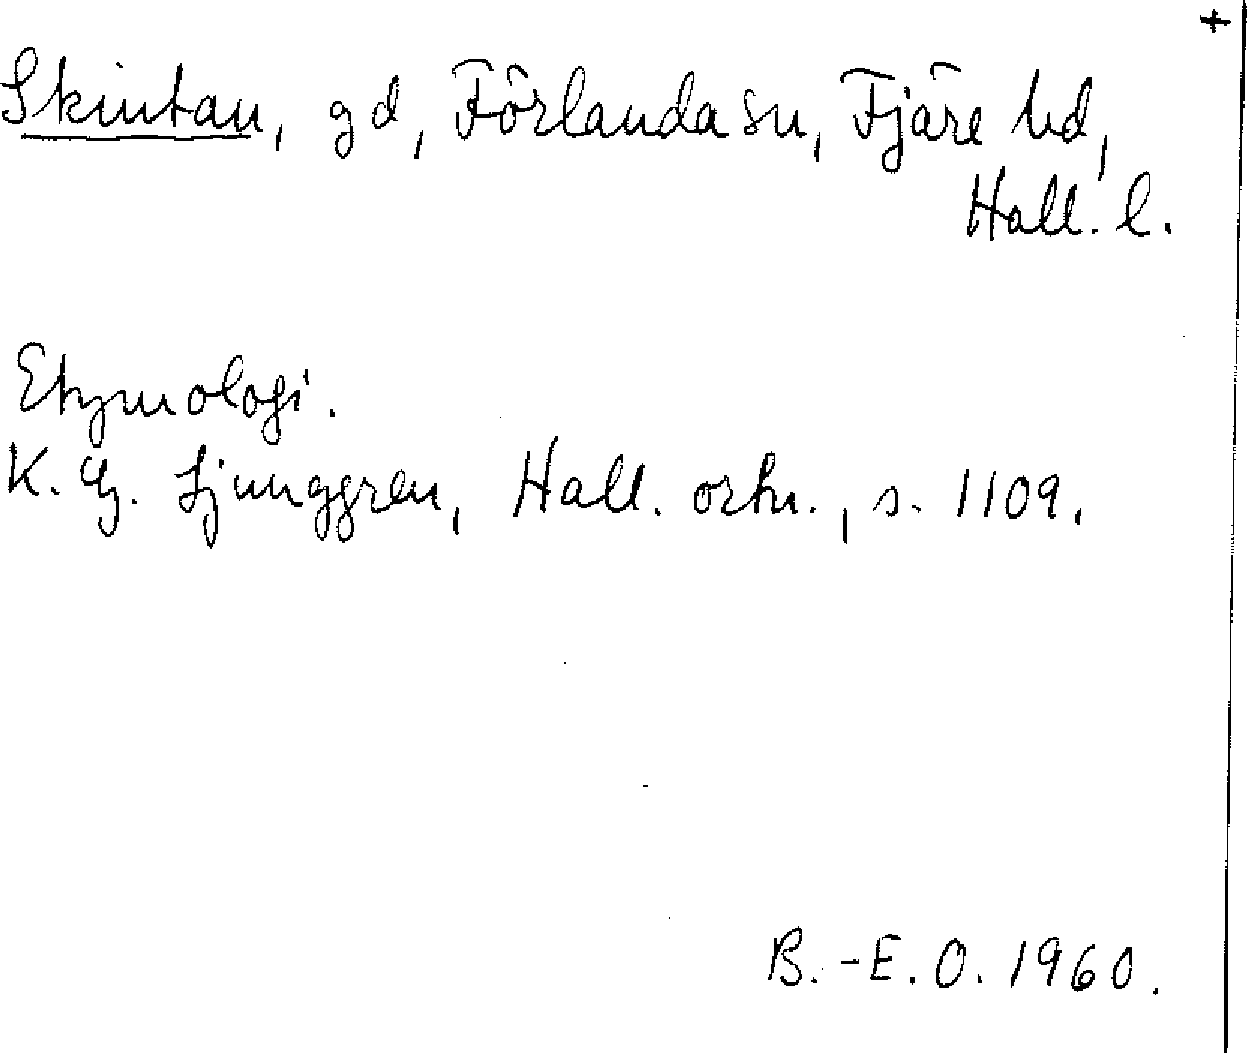 +
Skintan, gd, Förlanda sn, Fjäre hd,
Hall. l.
Etymologi.
K. G. Ljunggren, Hall. ortn., s. 1109.
B.-E. O. 1960.